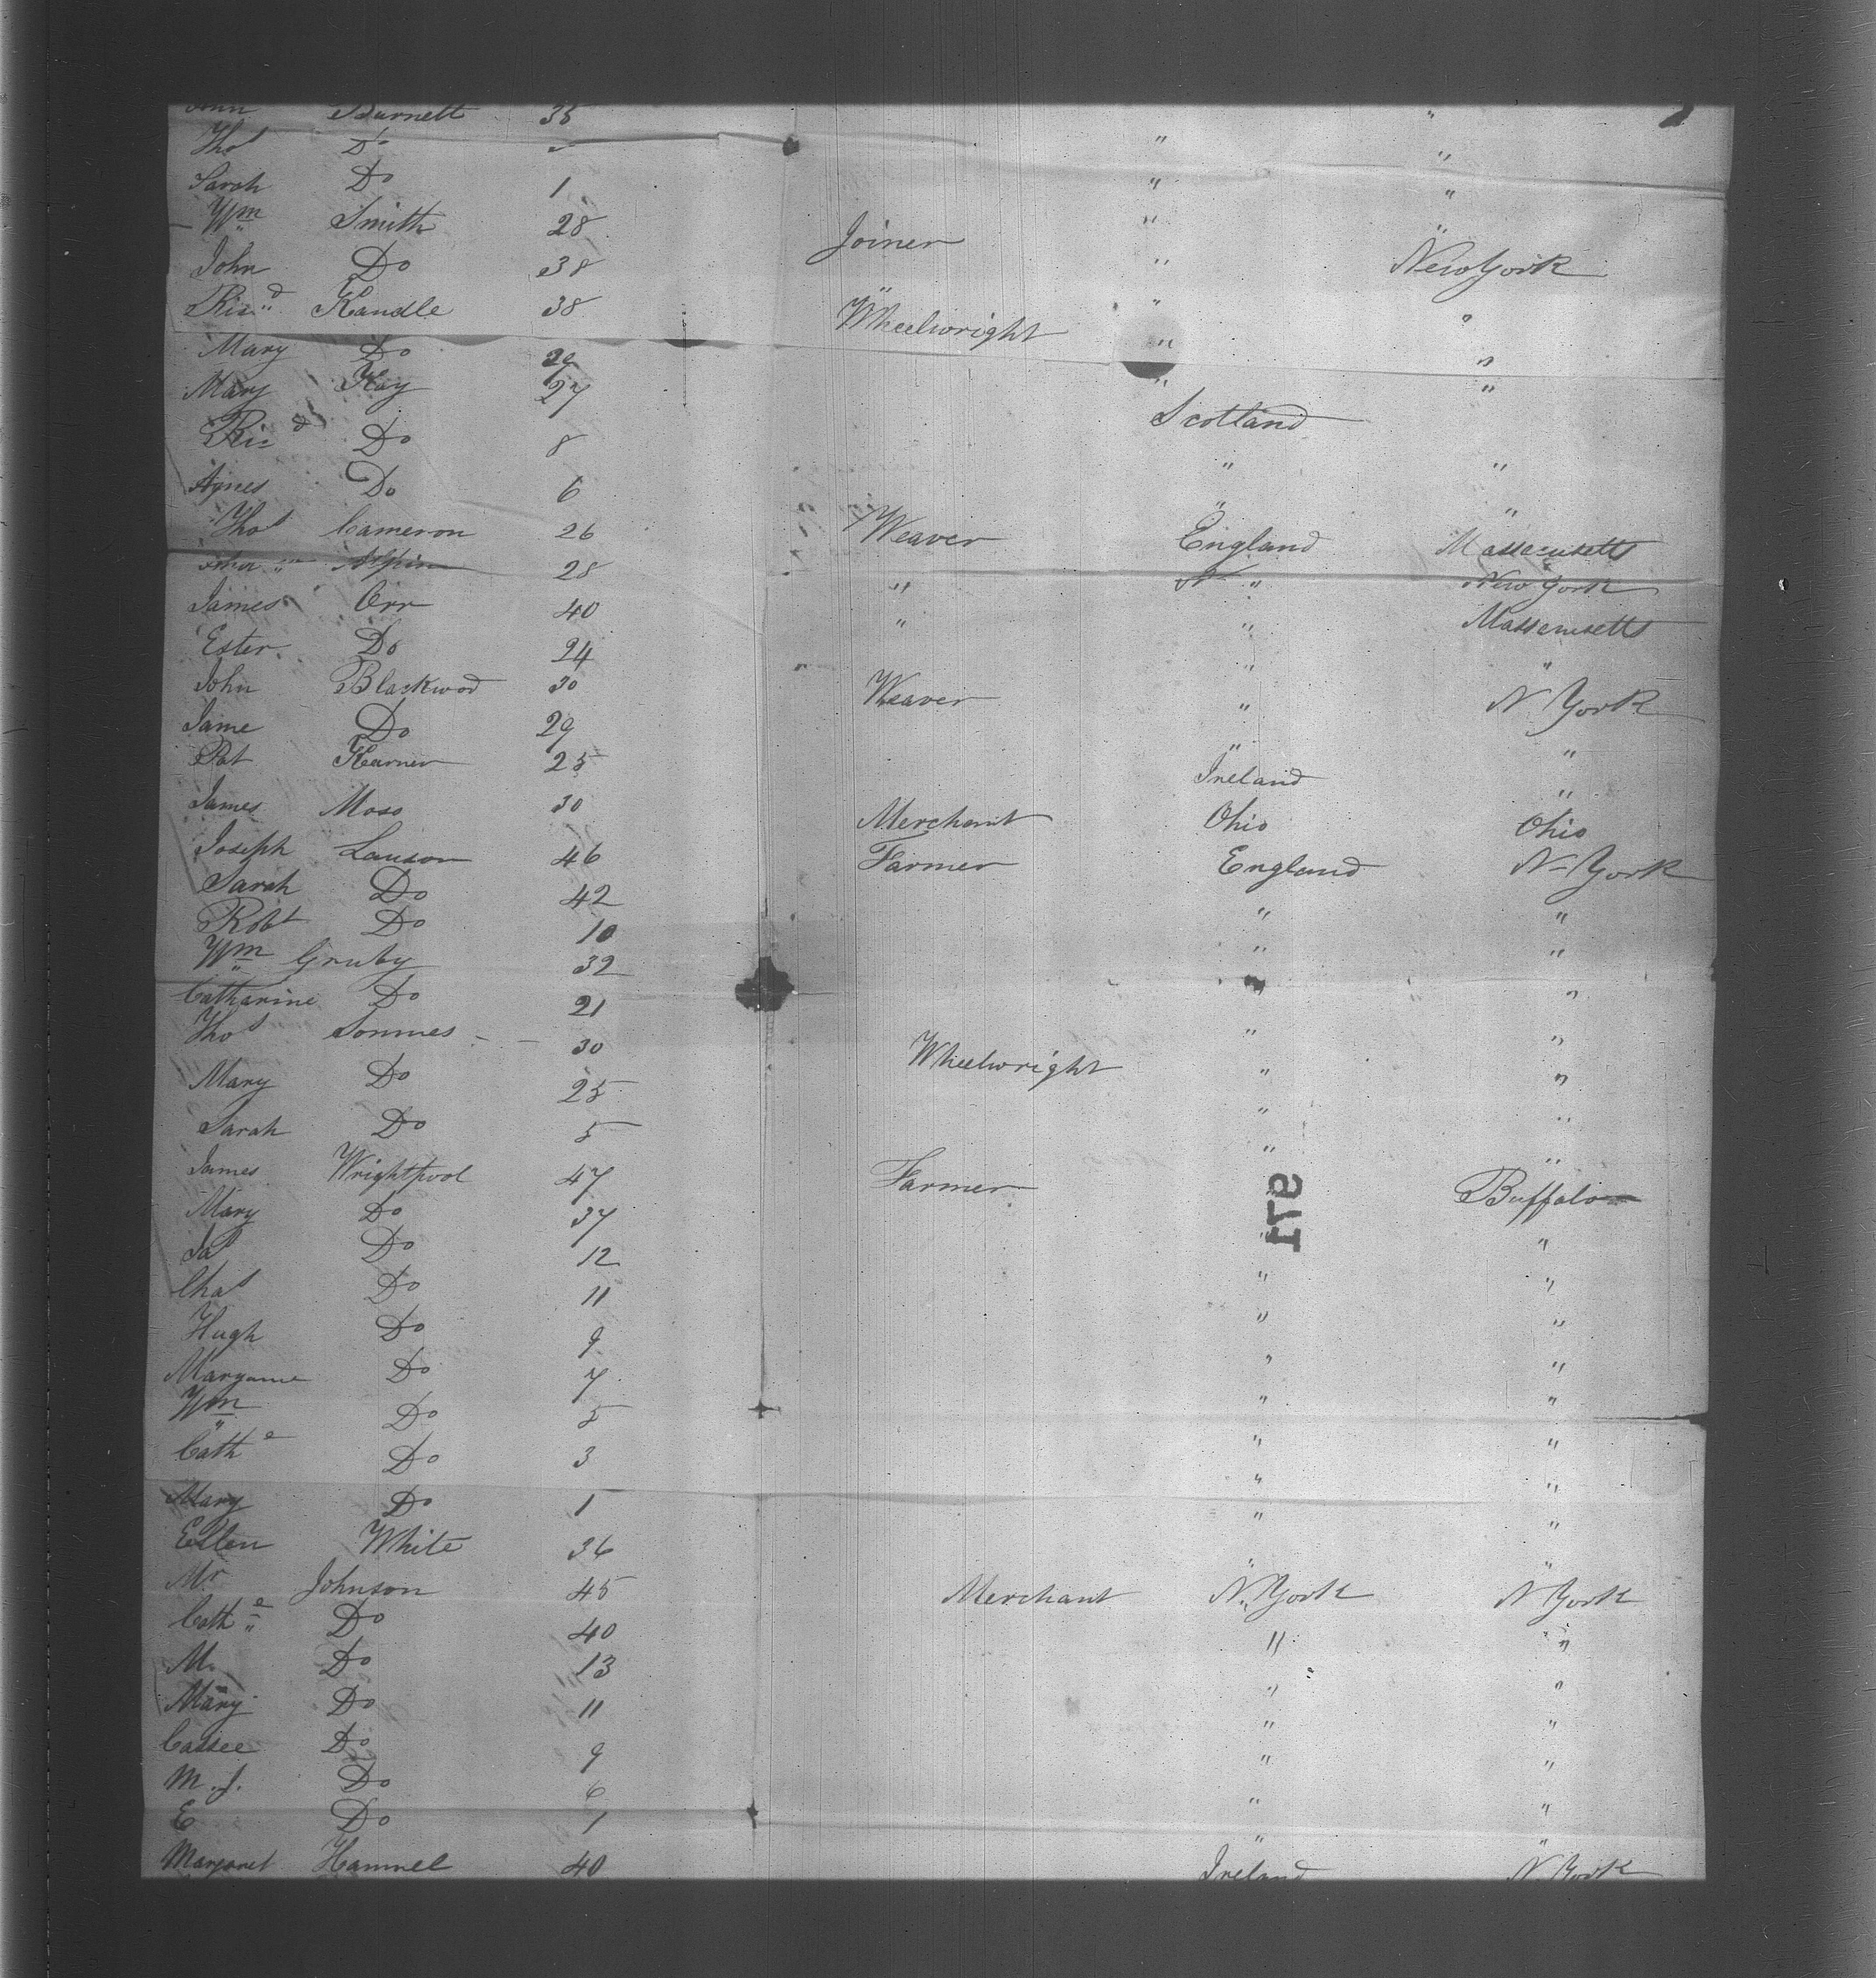 John Burnett 35 "
Thos Do " "
Sarah Do 1 " "
Wm Smith 28 Joiner " "
John Do 38 " New York
Ricd Kandle 38 " Wheelwright " "
Mary Do 29 " "
Mary Kay 27 " "
Ricd Do 8 Scotland
Agnes Do 6 " "
Thos Cameron 26 Weaver England Massacusetts
28 " " New York
James Orr 40 " " Massacusetts
Ester Do 24 " "
John Blackwod 30 Weaver " N York
Jame Do 29 " "
Pat Kearner 25 Ireland "
James Moss 30 Merchant Ohio Ohio
Joseph Lauson 46 Farmer England N York
Sarah Do 42 " "
Robt Do 10 " "
Wm Gruby 32 " "
Catharine Do 21 " "
Thos Sommes 30 Wheelwright " "
Mary Do 25 " "
Sarah Do 5 " "
James Wrightpool 47 Farmer " Buffalo
Mary Do 37 " "
Jas Do 12 " "
Chas Do 11 " "
Hugh Do 9 " "
Maryame Do 7 " "
Wm Do 5 " "
Cathe Do 3 " "
Mary Do 1 " "
Ellen White 36 " "
Mr Johnson 45 Merchant N. York N York
Cathe Do 40 " "
M. Do 13 " "
Mary Do 11 " "
Cassee Do 9 " "
M. J. Do 6 " "
E Do 1 " "
Margaret Hammel 40 Ireland N. York
171